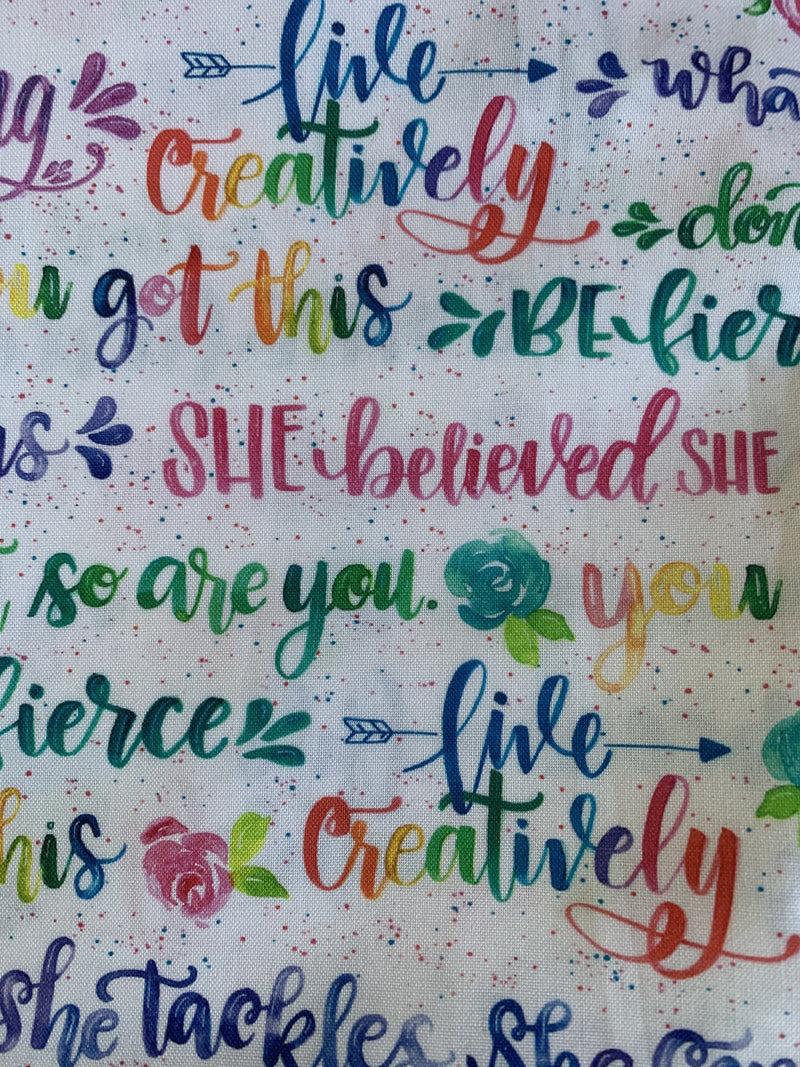 live
creatively
got this BE fier
SHE believed SHE
so are you. you
fierce live
this creatively
she tackles she